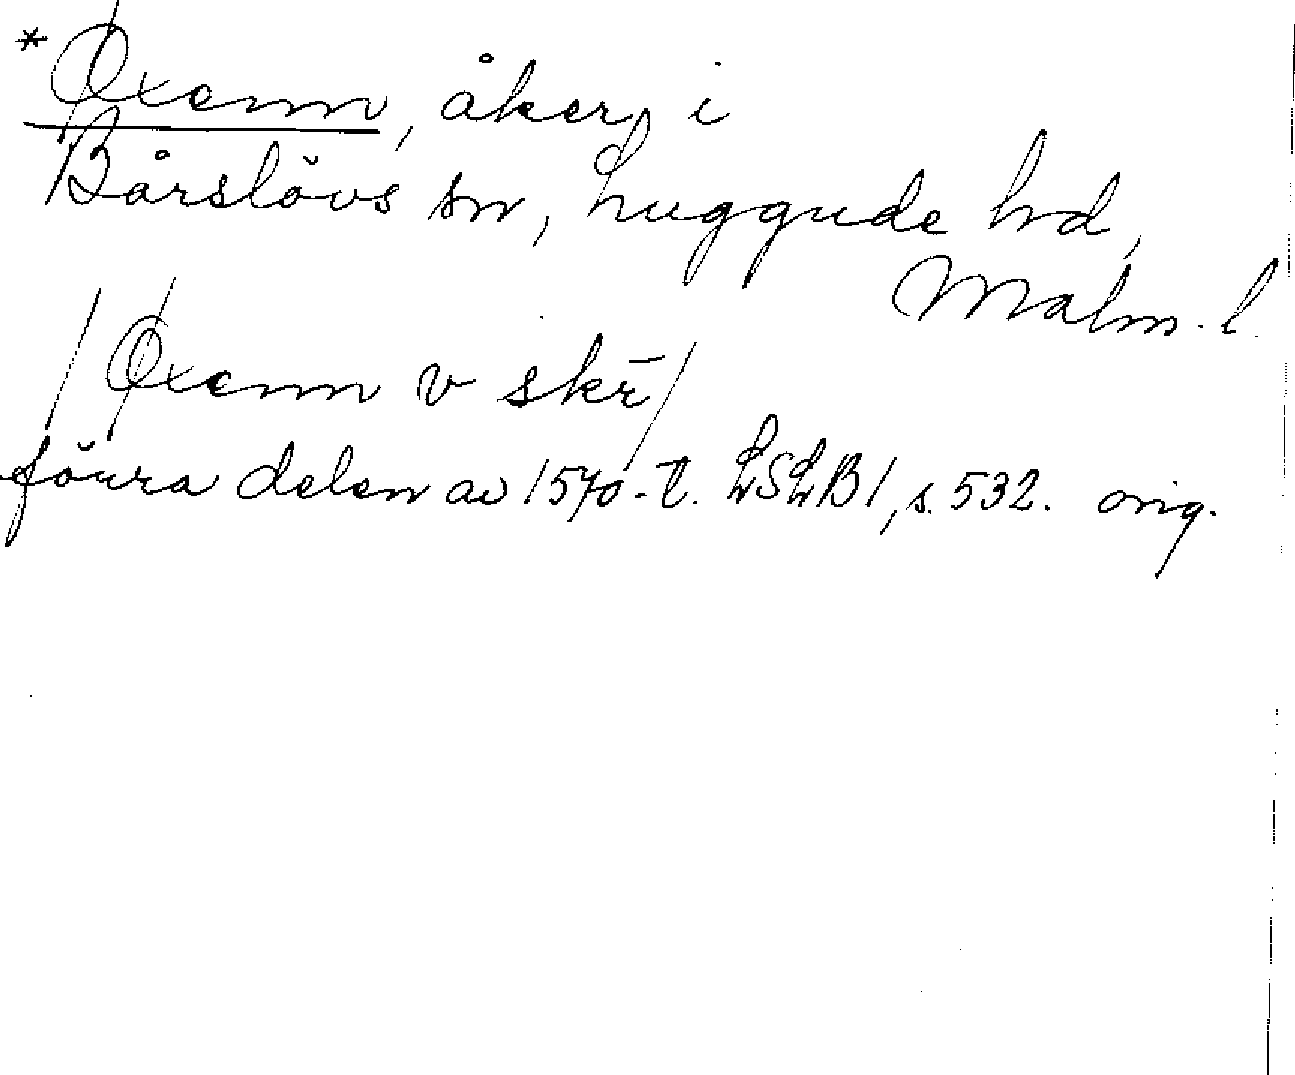 *Øxenn, åker, i
Bårslövs sn, Luggude hd,
Malm. l.
/Øxenn v skr̄/
förra delen av 1570-t. LSLB1, s. 532. orig.